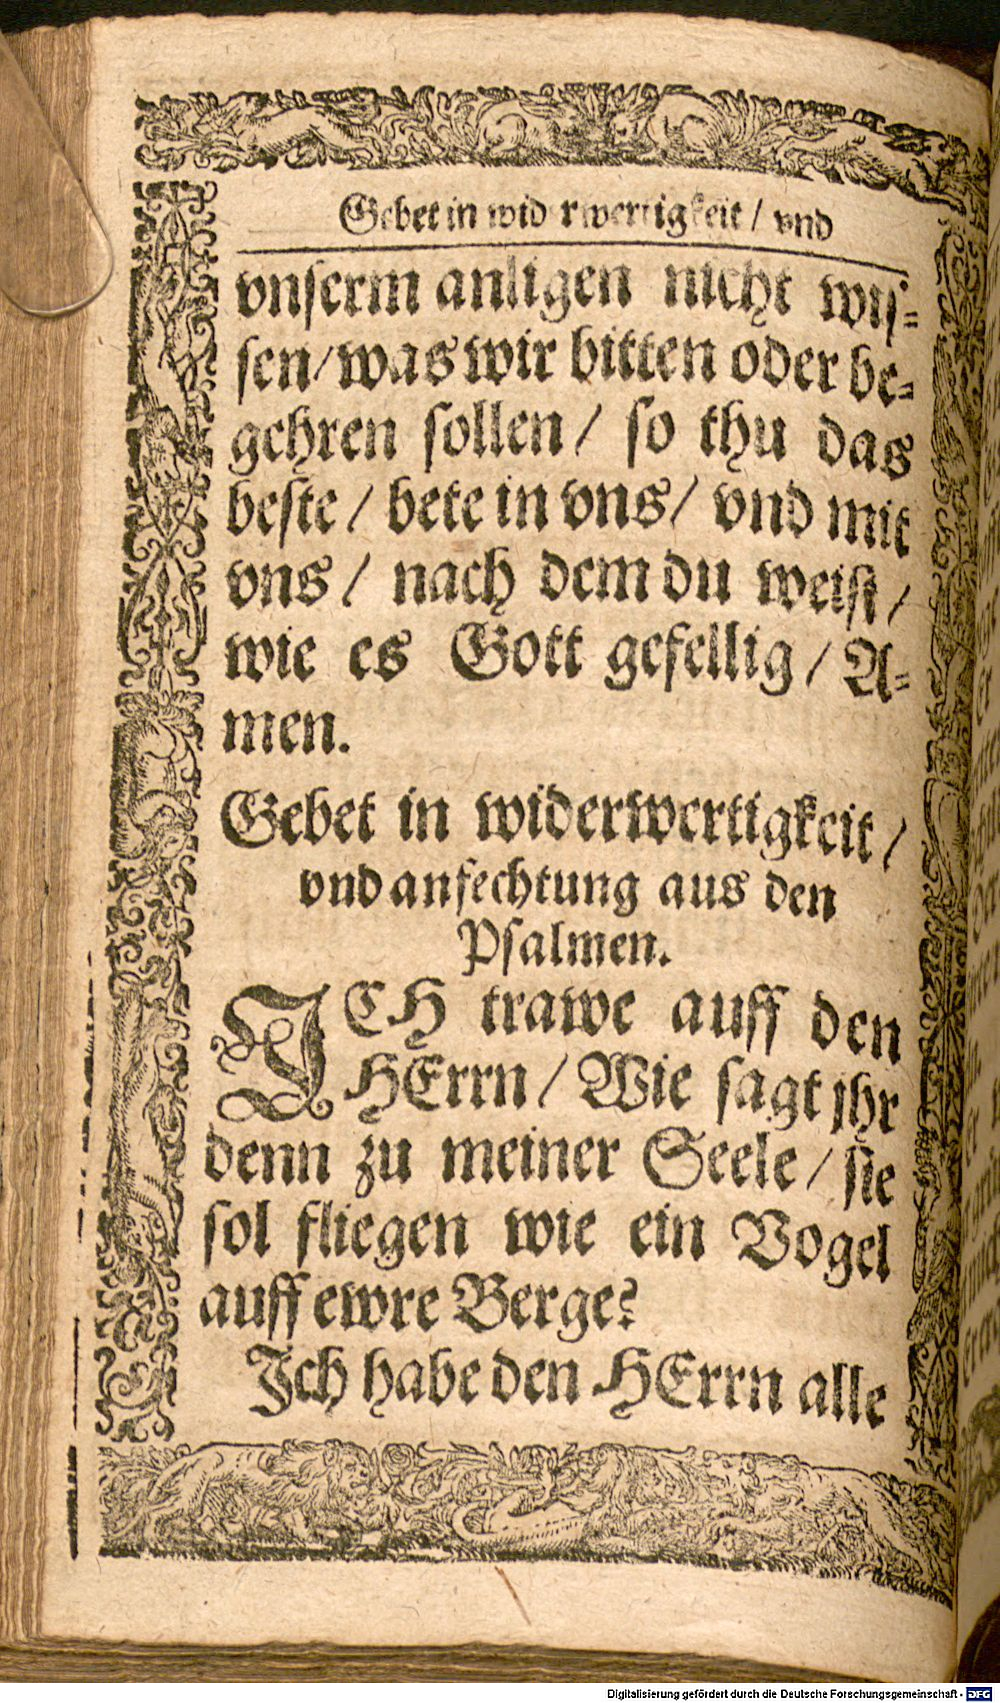 Gebet in widerwertigkeit / vnd
vnserm anligen nicht wis-
sen / was wir bitten oder be-
gehren sollen / so thu das
beste / bete in vns / vnd mit
vns / nach dem du weist /
wie es Gott gefellig / A-
men.
Gebet in widerwertigkeit /
vnd anfechtung aus den
Psalmen.
ICH trawe auff den
HErrn / Wie sagt jhr
denn zu meiner Seele / sie
sol fliegen wie ein Vogel
auff ewre Berge?
Ich habe den HErrn alle
Digitalisierung gefördert durch die Deutsche Forschungsgemeinschaft - DFG